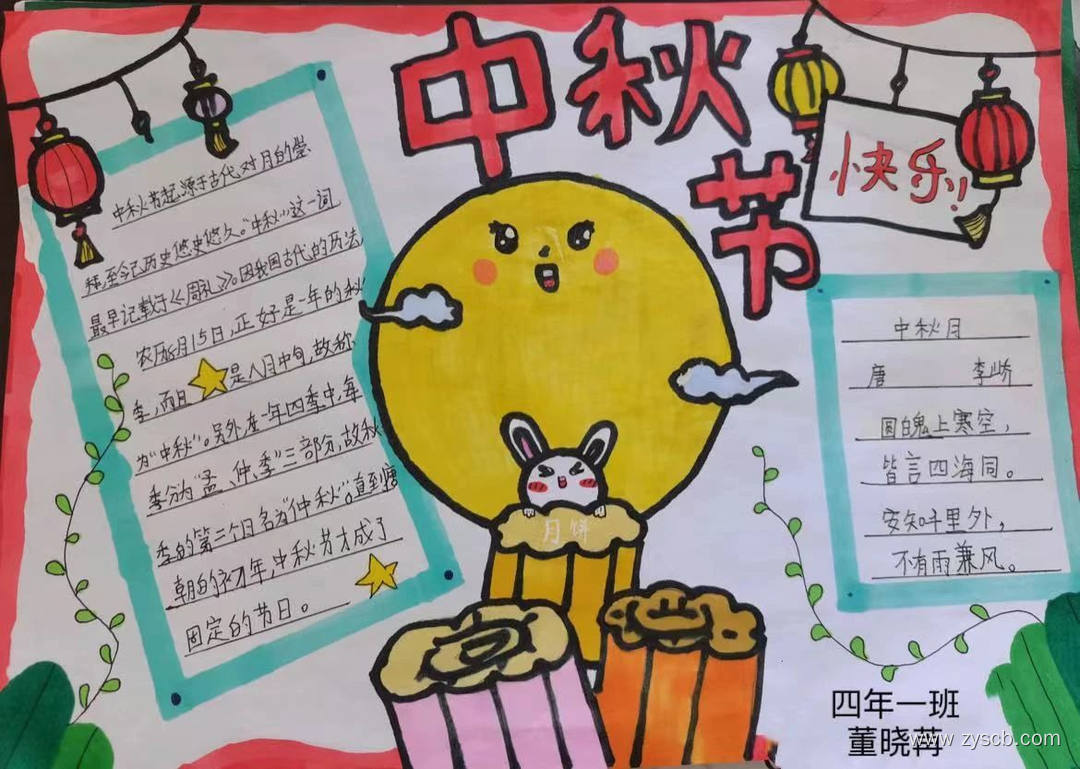 中秋节
快乐!!
中秋节起源于古代对月的崇
拜,至今已历史悠史悠久。"中秋"这一词
最早记载于《周礼》。因我国古代的历法
农历8月15日,正好是一年的秋
季,而且是八月中旬,故称
为"中秋"。另外,在一年四季中,每
季分为"孟、仲、季"三部分,故秋
季的第二个月名为"仲秋"。直到唐
朝的初年,中秋节才成了
固定的节日。
月饼
中秋月
唐 李峤
圆魄上寒空,
皆言四海同。
安知千里外,
不有雨兼风。
四年一班
董晓苒
www.zyscb.com